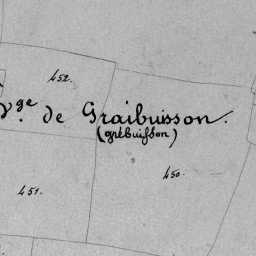 452.
Vge de Graibuisson.
(grébuisson)
450.
451.